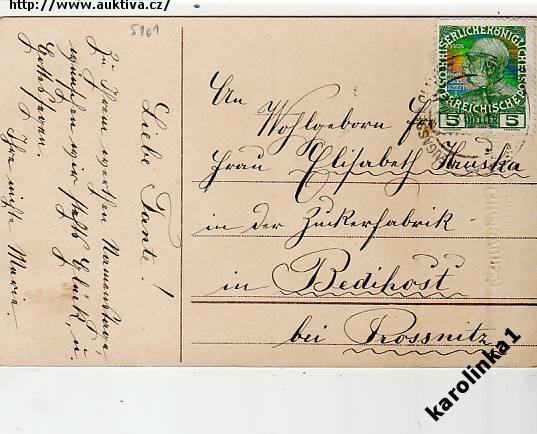 http://www.auktiva.cz/
5101
Liebe Tante!
Zu Ihrem werthen Namenstage,
wünschen wir stets Glück, u.
Gottes Segen.
Ihre nichte Marie.
KAISERLICHE KÖNIGLICHE
ÖSTERREICHISCHE
5 HELLER 5
An
Wohlgeborn
Frau Elisabeth Hruška
in der Zuckerfabrik
in Bedihost
bei Prossnitz
karolinka1